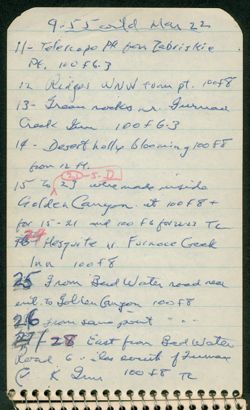 9-55 Mar 22
11- Telescope Pk from Zabriskie
Pt. 100 f 6.3
12 Ridges WNW from pt. 100 f8
13- Green rocks nr. Furnace
Creek Inn 100 f 6.3
14- Desert holly blooming 100 f8
from 12 ft.
15 to 23 were made inside
Golden Canyon at 100 f8 +
for 15-21 and 100 f6 for
24 Mesquite nr Furnace Creek
Inn 100 f8
25 From Bad Water road near
exit to Golden Canyon 100 f8
26 from same point " " "
27/28 East from Bad Water
Road 6 south of Furnace
C k Inn 100 f8 TC